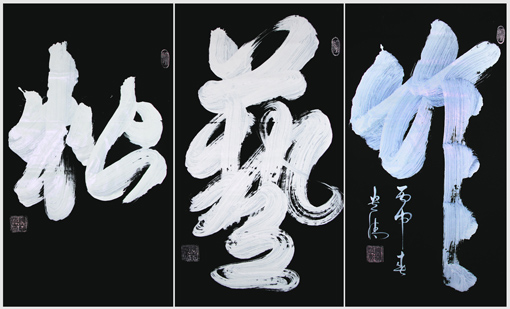 松
藝
竹
丙申春